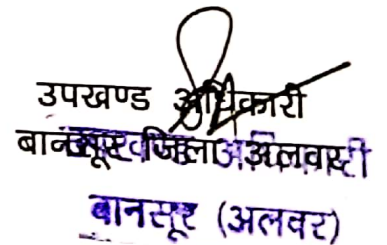 उपखण्ड अधिकारी
बानसूर जिला अलवर
बानसूर (अलवर)